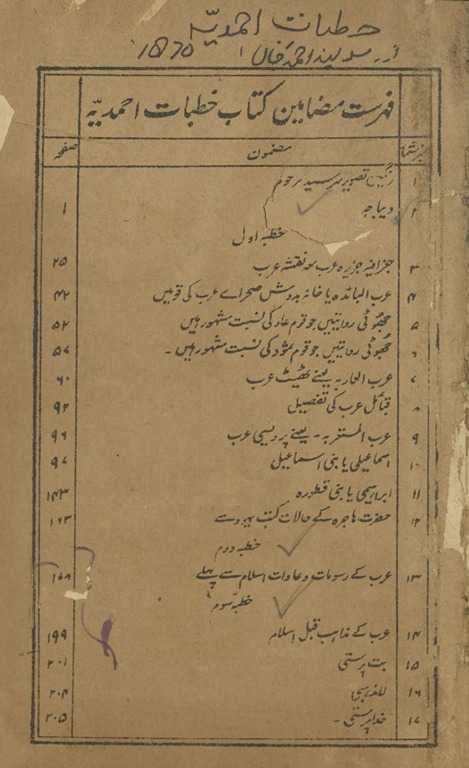 خطبات احمدیہ
از سر سید احمد خاں 1870
فہرست مضامین کتاب خطبات احمدیّہ
نمبر شمار مضمون صفحہ
۱ رنگین تصویر سر سید مرحوم
۲ دیباچہ ۱
خطبہ اول
۳ جغرافیہ جزیرہ عرب مع نقشہ عرب ۲۵
۴ عرب البائدہ یا خانہ بدوش صحراے عرب کی قومیں ۴۲
۵ جھوٹی روایتیں جو قوم عاد کی نسبت مشہور ہیں ۵۲
۶ جھوٹی روایتیں جو قوم ثمود کی نسبت مشہور ہیں ۔ ۵۷
۷ عرب العاربہ یعنے ٹھیٹ عرب ۶۰
۸ قبائل عرب کی تفصیل ۹۲
۹ عرب المستعربہ ۔ یعنے پردیسی عرب ۹۶
۱۰ اسماعیلی یا بنی اسماعیل ۹۷
۱۱ ابراہیمی یا بنی قطورہ ۱۴۳
۱۲ حضرت ہاجرہ کے حالات کتب یہود سے ۱۶۳
خطبہ دوم
۱۳ عرب کے رسومات و عادات اسلام سے پہلے ۱۶۸
خطبہ سوم
۱۴ عرب کے مذاہب قبل اسلام ۱۹۹
۱۵ بت پرستی ۲۰۱
۱۶ لامذہبی ۲۰۴
۱۷ خدا پرستی ۔ ۲۰۵